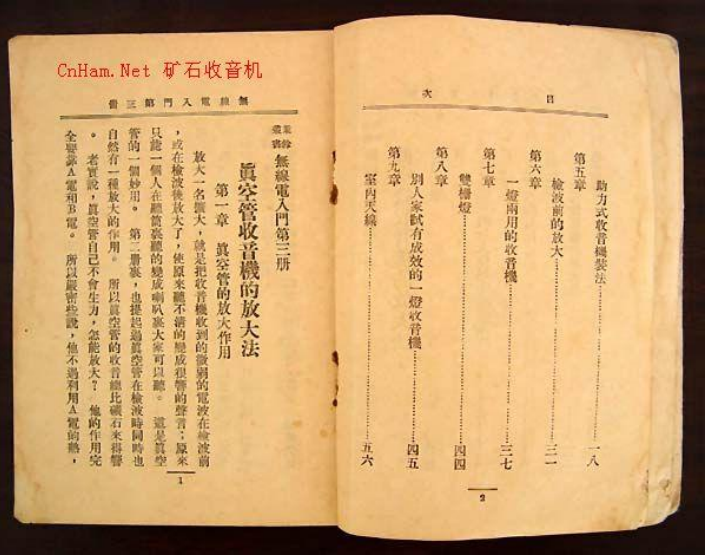 CnHam.Net 矿石收音机
目次
第五章
助力式收音機裝法……一八
第六章
檢波前的放大……三一
第七章
一燈兩用的收音機……三七
第八章
雙柵燈……四四
第九章
別人家試有成效的一燈收音機……四五
室內天綫……五六
2
無線電入門第三冊
業餘叢書 無線電入門第三册
眞空管收音機的放大法
第一章 眞空管的放大作用
放大一名擴大,就是把收音機收到的微弱的電波在檢波前
,或在檢波後放大了,使原來聽不清的變成很響的聲音;原來
只能一個人在聽筒裏聽的變成喇叭裏大家可以聽。 這是眞空
管的一個妙用。 第二册裏,也提起過眞空管在檢波時同時也
自然有一種放大的作用。 所以眞空管的收音總比礦石來得響
。 老實說,眞空管自己不會生力,怎能放大? 他的作用完
全要靠A電和B電。 所以嚴密些說,他不過利用A電的熱,
1